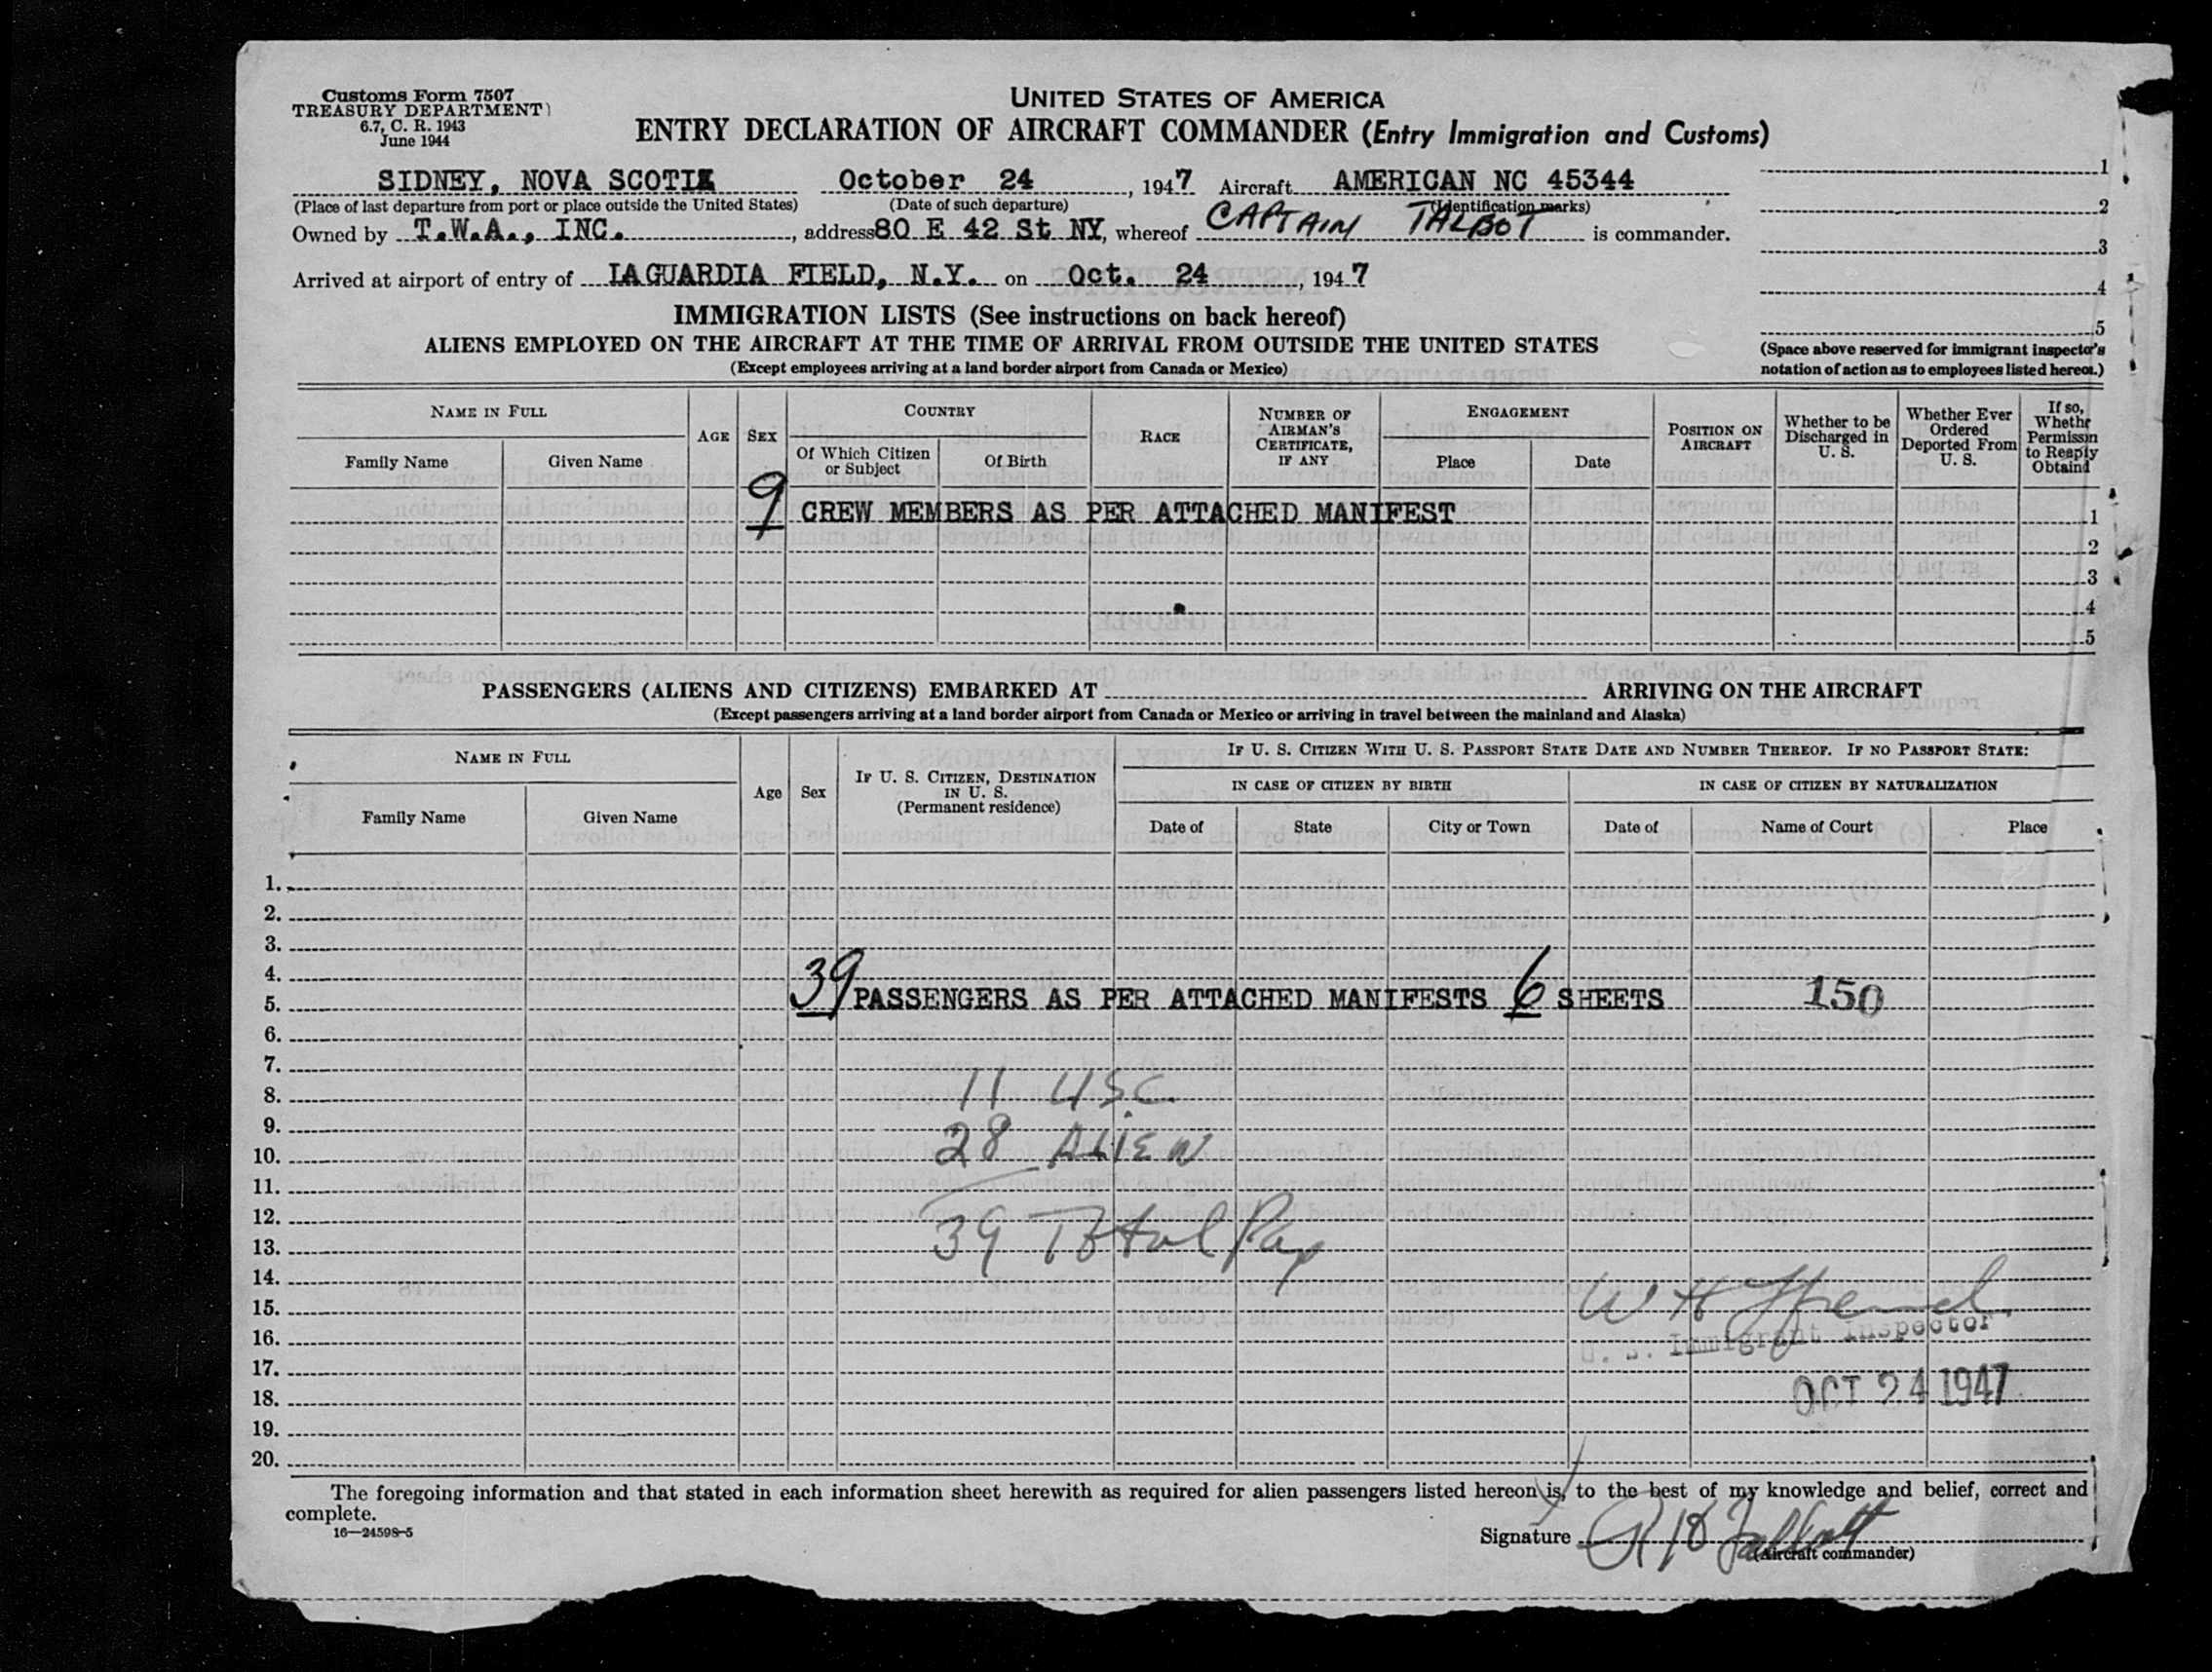 Customs Form 7507
TREASURY DEPARTMENT
6.7, C. R. 1943
June 1944
UNITED STATES OF AMERICA
ENTRY DECLARATION OF AIRCRAFT COMMANDER (Entry Immigration and Customs)
SIDNEY, NOVA SCOTIA October 24, 1947 Aircraft AMERICAN NC 45344
(Place of last departure from port or place outside the United States) (Date of such departure) (Identification marks)
Owned by T.W.A., INC., address 80 E 42 St NY, whereof CAPTAIN TALBOT is commander.
Arrived at airport of entry of LAGUARDIA FIELD, N.Y. on Oct. 24, 1947
1
2
3
4
5
(Space above reserved for immigrant inspector's
notation of action as to employees listed hereon.)
IMMIGRATION LISTS (See instructions on back hereof)
ALIENS EMPLOYED ON THE AIRCRAFT AT THE TIME OF ARRIVAL FROM OUTSIDE THE UNITED STATES
(Except employees arriving at a land border airport from Canada or Mexico)
NAME IN FULL
Family Name
Given Name
AGE
SEX
COUNTRY
Of Which Citizen
or Subject
Of Birth
RACE
NUMBER OF
AIRMAN'S
CERTIFICATE,
IF ANY
ENGAGEMENT
Place
Date
POSITION ON
AIRCRAFT
Whether to be
Discharged in
U. S.
Whether Ever
Ordered
Deported From
U. S.
If so,
Whethr
Permissin
to Reaply
Obtaind
9 CREW MEMBERS AS PER ATTACHED MANIFEST 1
2
3
4
5
PASSENGERS (ALIENS AND CITIZENS) EMBARKED AT ARRIVING ON THE AIRCRAFT
(Except passengers arriving at a land border airport from Canada or Mexico or arriving in travel between the mainland and Alaska)
NAME IN FULL
Family Name
Given Name
Age
Sex
IF U. S. CITIZEN, DESTINATION
IN U. S.
(Permanent residence)
IF U. S. CITIZEN WITH U. S. PASSPORT STATE DATE AND NUMBER THEREOF. IF NO PASSPORT STATE:
IN CASE OF CITIZEN BY BIRTH
Date of
State
City or Town
IN CASE OF CITIZEN BY NATURALIZATION
Date of
Name of Court
Place
1.
2.
3.
4.
5. 39 PASSENGERS AS PER ATTACHED MANIFESTS 6 SHEETS 150
6.
7.
8. 11 USC
9.
10. 28 ALIEN
11.
12.
13. 39 Total Pax
14.
15. W H
16. U. S. Immigrant Inspector
17.
18. OCT 24 1947
19.
20.
The foregoing information and that stated in each information sheet herewith as required for alien passengers listed hereon is, to the best of my knowledge and belief, correct and
complete.
16—24598-5
Signature
(Aircraft commander)